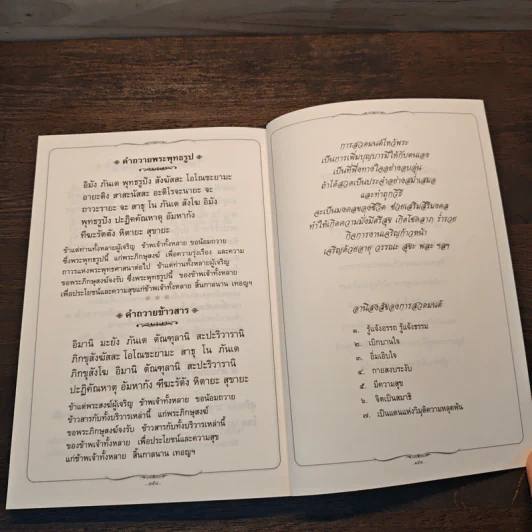 คำถวายพระพุทธรูป
อิมัง ภันเต พุทธรูปัง สังฆัสสะ โอโณชะยามะ
อายะติง สาสะนัสสะ อะติโรจะนายะ จะ
ถาวะรายะ จะ สาธุ โน ภันเต สังโฆ อิมัง
พุทธรูปัง ปะฏิคคัณหาตุ อัมหากัง
ทีฆะรัตตัง หิตายะ สุขายะ
ข้าแต่ท่านทั้งหลายผู้เจริญ ข้าเจ้าทั้งหลาย ขอน้อมถวาย
ซึ่งพระพุทธรูปนี้ แก่พระภิกษุสงฆ์ เพื่อความรุ่งเรือง และความ
ถาวรแห่งพระพุทธศาสนาต่อไป ข้าแต่ท่านทั้งหลายผู้เจริญ
ขอพระภิกษุสงฆ์จงรับ ซึ่งพระพุทธรูปนี้ ของข้าพเจ้าทั้งหลาย
เพื่อประโยชน์และความสุขแก่ข้าพเจ้าทั้งหลาย สิ้นกาลนาน เทอญฯ
คำถวายข้าวสาร
อิมานิ มะยัง ภันเต ตัณฑุลานิ สะปะริวารานิ
ภิกขุสังฆัสสะ โอโณชะยามะ สาธุ โน ภันเต
ภิกขุสังโฆ อิมานิ ตัณฑุลานิ สะปะริวารานิ
ปะฏิคคัณหาตุ อัมหากัง ทีฆะรัตตัง หิตายะ สุขายะ
ข้าแต่พระสงฆ์ผู้เจริญ ข้าพเจ้าทั้งหลาย ขอน้อมถวาย
ข้าวสารกับทั้งบริวารเหล่านี้ แก่พระภิกษุสงฆ์
ขอพระภิกษุสงฆ์จงรับ ข้าวสารกับทั้งบริวารเหล่านี้
ของข้าพเจ้าทั้งหลาย เพื่อประโยชน์และความสุข
แก่ข้าพเจ้าทั้งหลาย สิ้นกาลนาน เทอญฯ
การสวดมนต์ไหว้พระ
เป็นการเพิ่มบุญบารมีให้กับตนเอง
เป็นที่พึ่งทางใจอย่างอบอุ่น
ถ้าได้สวดเป็นประจำอย่างสม่ำเสมอ
และทำถูกวิธี
จะเป็นมงคลของชีวิต ช่วยเสริมสิริมงคล
ทำให้เกิดความมั่งมีศรีสุข เกิดโชคลาภ ร่ำรวย
กิจการงานเจริญก้าวหน้า
เจริญด้วยอายุ วรรณะ สุขะ พละ ฯลฯ
อานิสงส์ของการสวดมนต์
๑. รู้แจ้งอรรถ รู้แจ้งธรรม
๒. เบิกบานใจ
๓. อิ่มเอิบใจ
๔. กายสงบระงับ
๕. มีความสุข
๖. จิตเป็นสมาธิ
๗. เป็นแดนแห่งวิมุติความหลุดพ้น